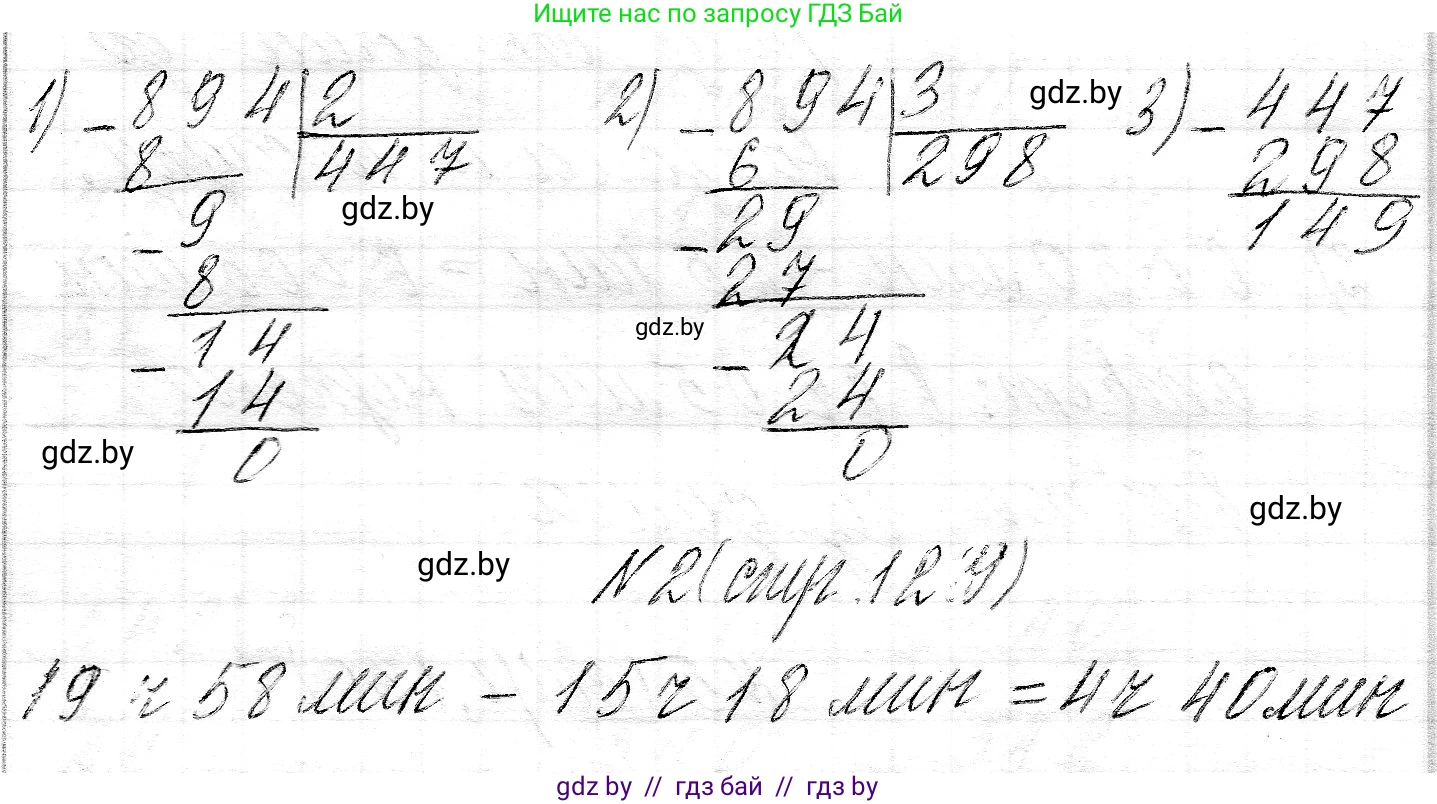 Ищите нас по запросу ГДЗ Бай
1) - 894 | 2 2) - 894 | 3 gdz.by 3) - 447
8 447 6 298 298
gdz.by
- 9 - 29 149
8 27
gdz.by
- 14 - 24
14 24
gdz.by 0 0
gdz.by
gdz.by N2(стр. 12 У)
19 ч 58 мин - 15 ч 18 мин = 4 ч 40 мин
gdz.by // гдз бай // гдз by